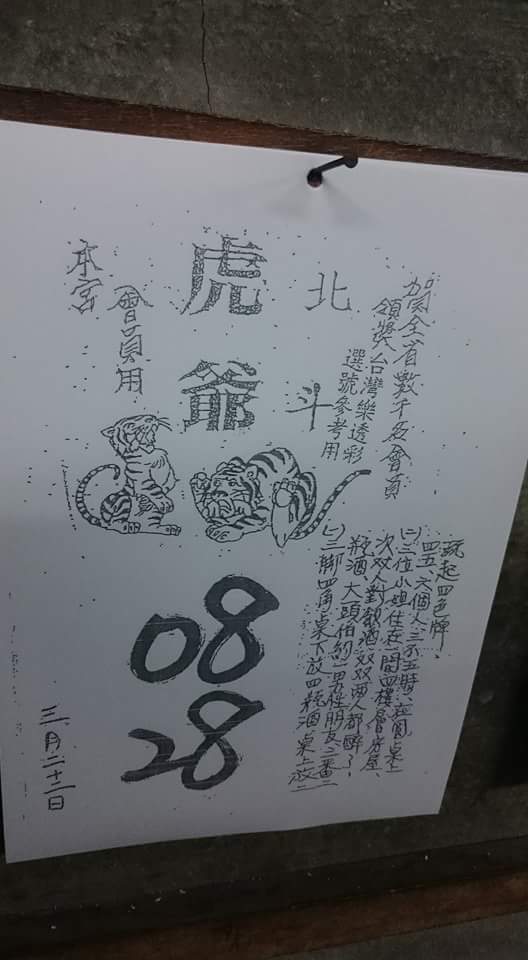 賀全省數千名會員
領獎台灣樂透彩
選號參考用
北斗
虎爺
會員用
本宮
玩起四色牌、
四五、六個人三不五時、在圓桌上
㈡三位小姐住在一間四樓層房屋、
次双人對飲酒双双兩人都醉了、
瓶酒大頭伯約一男性朋友二番二
㈠二腳四角桌下放四瓶酒桌上放二
08
28
三月二十二日